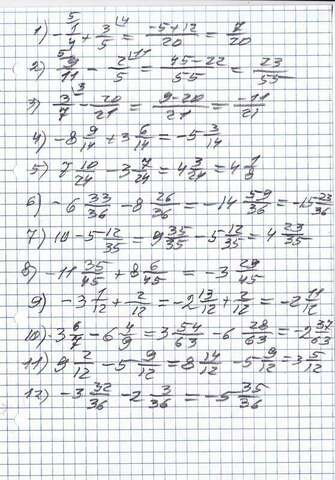 1) -1/4 ⁵ + 3/5 ⁴ = -5+12/20 = 7/20
2) 9/11 ⁵ - 2/5 ¹¹ = 45-22/55 = 23/55
3) 3/7 ³ - 20/21 = 9-20/21 = -11/21
4) -8 9/14 + 3 6/14 = -5 3/14
5) 7 10/24 - 3 7/24 = 4 3/24 = 4 1/8
6) -6 33/36 - 8 26/36 = -14 59/36 = -15 23/36
7) 10 - 5 12/35 = 9 35/35 - 5 12/35 = 4 23/35
8) -11 35/45 + 8 6/45 = -3 29/45
9) -3 1/12 + 2/12 = -2 13/12 + 2/12 = -2 11/12
10) 3 6/7 - 6 4/9 = 3 54/63 - 6 28/63 = -2 37/63
11) 9 2/12 - 5 9/12 = 8 14/12 - 5 9/12 = 3 5/12
12) -3 32/36 - 2 3/36 = -5 35/36